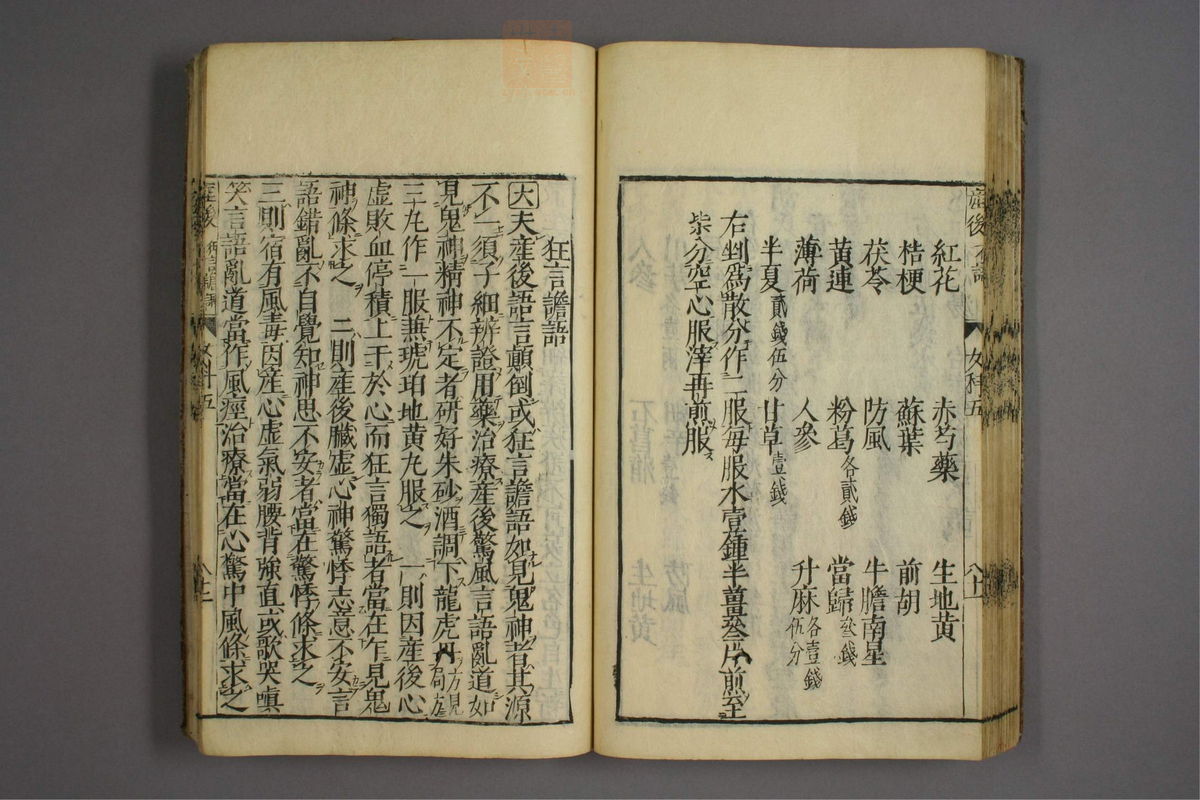 紅花 赤芍藥 生地黄
桔梗 蘇葉 前胡
茯苓 防風 牛膽南星
黄連 粉葛各貳錢 當歸叄錢
薄荷 人參 升麻各壹錢伍分
半夏貳錢伍分 甘草壹錢
右剉爲散分作二服每服水壹鍾半薑叄片煎至
柒分空心服滓再煎服
狂言譫語
大夫産後語言顛倒或狂言譫語如見鬼神者其源
不一須子細辨證用藥治療産後驚風言語亂道如
見鬼神精神不定者研好朱砂酒調下龍虎丹方見
三丸作一服兼琥珀地黄丸服之 一則因産後心
虚敗血停積上干於心而狂言獨語者當在乍見鬼
神條求之 二則産後臟虚心神驚悸志意不安言
語錯亂不自覺知神思不安者當在驚悸條求之
三則宿有風毒因産心虚氣弱腰背強直或歌哭嗔
笑言語亂道當作風痙治療當在心驚中風條求之
産後
女科五
産後
女科五